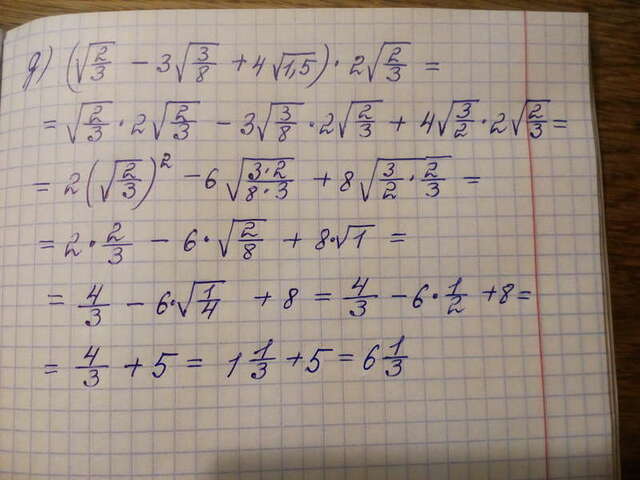 д) (√(2/3) − 3√(3/8) + 4√1,5) · 2√(2/3) =
= √(2/3) · 2√(2/3) − 3√(3/8) · 2√(2/3) + 4√(3/2) · 2√(2/3) =
= 2(√(2/3))² − 6√((3·2)/(8·3)) + 8√(3/2 · 2/3) =
= 2 · 2/3 − 6 · √(2/8) + 8·√1 =
= 4/3 − 6·√(1/4) + 8 = 4/3 − 6·1/2 + 8 =
= 4/3 + 5 = 1 1/3 + 5 = 6 1/3